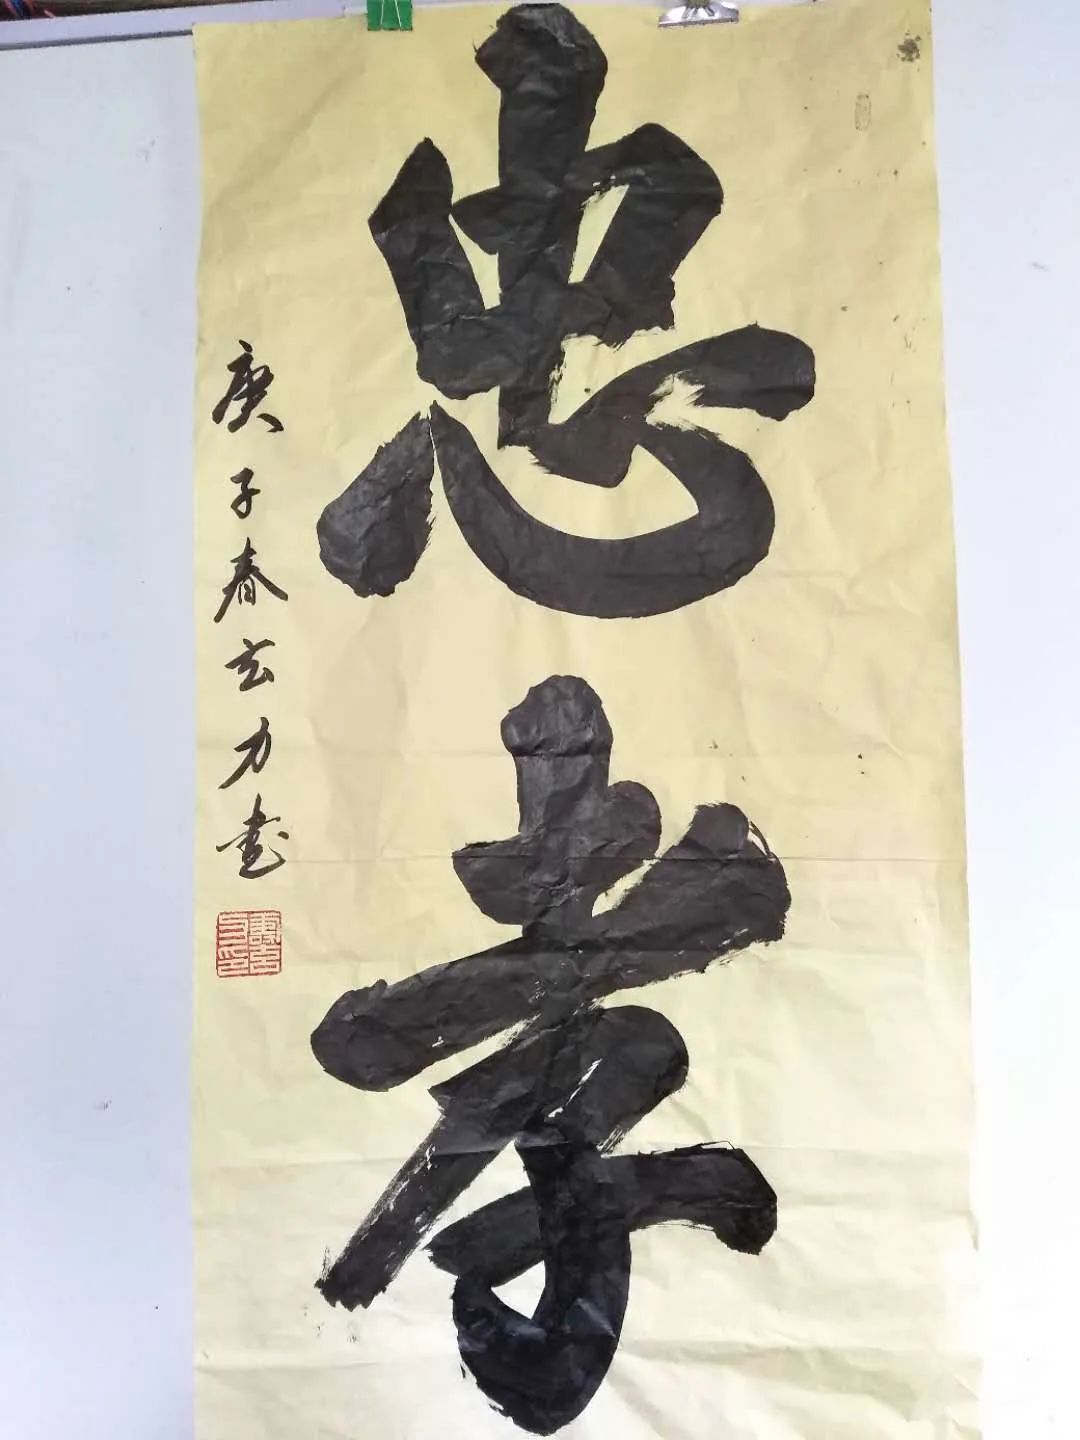 忠孝
庚子春玄力书